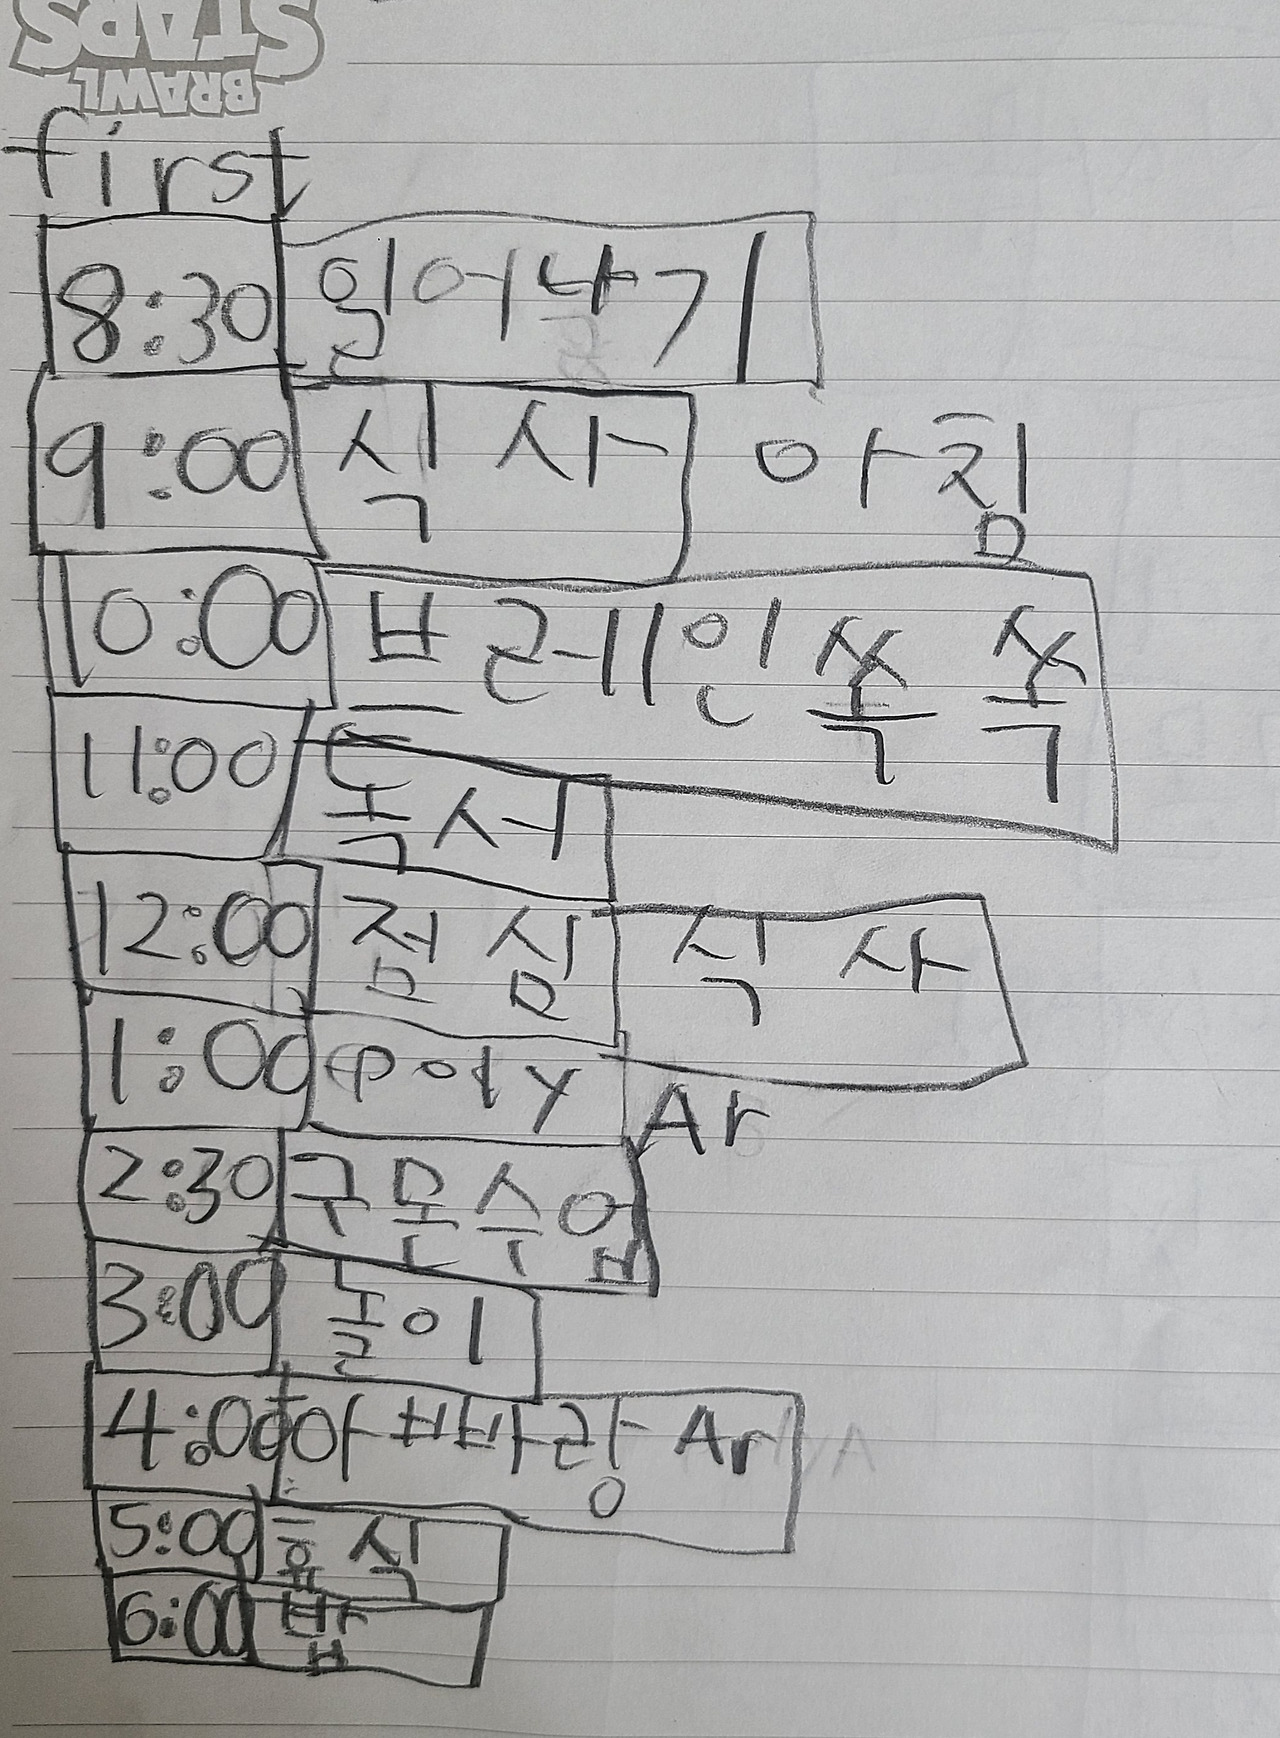 BRAWL
STARS
first
8:30 일어나기
9:00 식사 아침
10:00 브레인쑥쑥
11:00 독서
12:00 점심 식사
1:00
Ar
2:30 구몬수업
3:00 놀이
4:00 아빠랑 Ar
5:00 휴식
6:00 밥